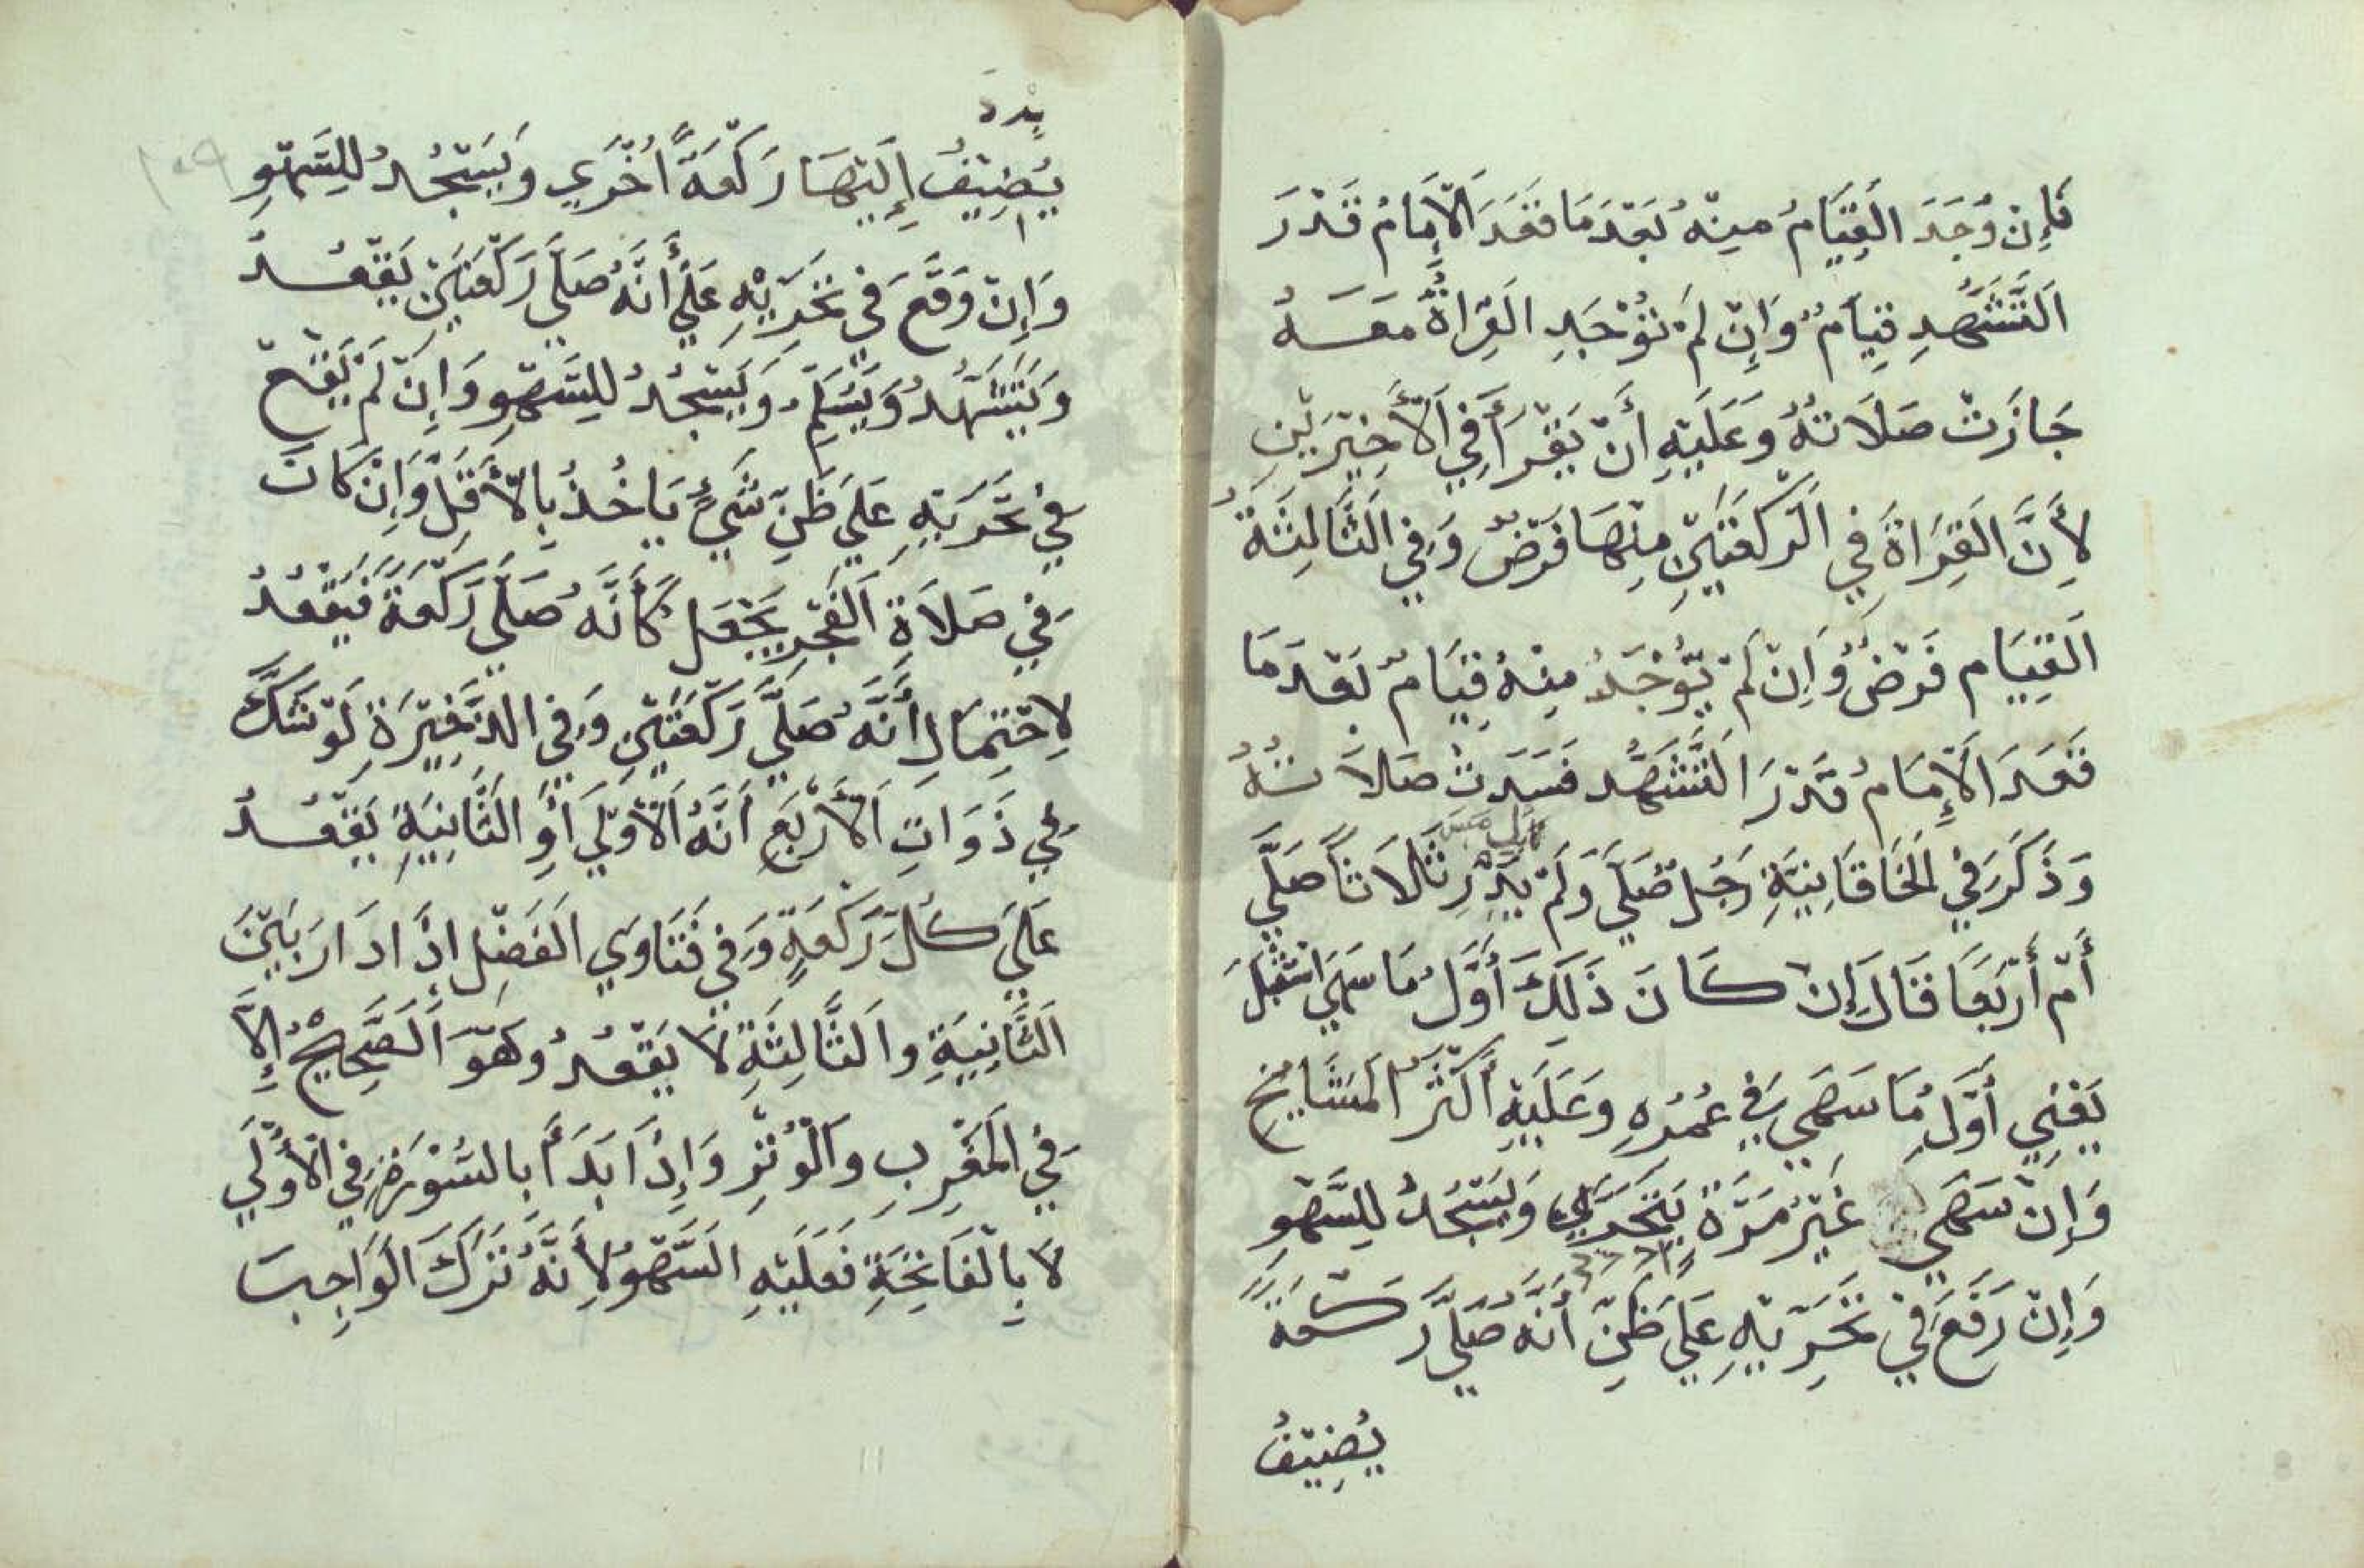 فَإِنْ وُجَدَ الْقِيَامُ مِنْهُ بَعْدَ مَا قَعَدَ الْاِمَامُ قَدْرَ
اَلتَّشَهُّدِ قِيَامٌ وَإِنْ لَمْ تُوْجَدِ الْقِرَاةُ مَعَهُ
جَازَتْ صَلَاتُهُ وَعَلَيْهِ أَنْ يَقْرَأَ فِي الْأَخِيْرَيْنِ
لِأَنَّ الْقِرَاةَ فِي الرَّكْعَتَيْنِ مِنْهَا فَرْضٌ وَفِي الثَّالِثَةُ
الْقِيَام فَرْضٌ وَإِنْ لَمْ يُوْجَدُ مِنْهُ قِيَامٌ بَعْدَ مَا
قَعَدَ الْإِمَامُ قَدْرَ التَّشَهُّد فَسَدَتْ صَلَاتُهُ
وَذَكَرَ فِي الْخَاقَانِيَّةِ رَجُل صَلَّي وَلَمْ يَدْرِ ثَالَاثًا صَلَّي
أَمْ أَرْبَعًا قَالَ إِنْ كَانَ ذَلِكَ أَوَّلُ مَا سَهَي اسْتَقْبَلَ
يَعْنِي أَوَّلُ مَا سَهَي فِي عُمُرِهِ وَعَلَيْهِ أَكْثَرُ الْمَشَايِخِ
وَإِنْ سَهَي غَيْرُ مَرَّةٍ يَتَحَرَّي وَيَسْجُدُ لِلسَّهْوِ
وَإِنْ رَقَعَ فِي تَحَرِّيْهِ عَلَي ظَنِّ أَنَّهُ صَلَّي رَكْعَةً
يُضِيْفُ
يُضِيْفُ إِلَيْهَا رَكْعَةً اُخْرَي وَيَسْجُدُ لِلسَّهْوِ
وَإِنْ وَقَعَ فِي تَحَرِّيْهِ عَلَي أَنَّهُ صَلَّي رَكْعَتَيْنِ يَقْعُدُ
وَيَتَشَهَّدُ وَيُسَلِّمُ وَيَسْجُدُ لِلسَّهْوِ وَإِنْ لَمْ يَقَعْ
فِي تَحَرِّيْهِ عَلَي ظَنِّ شَيْءٍ يَاخُذُ بِالْأَقَلِّ وَإِنْ كَانَ
فِي صَلَاةِ الْفَجْرِ يَجْعَل كَأَنَّهُ صَلَّي رَكْعَةً فَيَقْعُدُ
لِاحْتِمَالِ أَنَّهُ صَلَّي رَكْعَتَيْنِ وَفِي الذَّخِيْرَةِ لَوْ شَكَّ
فِي ذَوَاتِ الْأَرْبَعِ اَنَّهُ الْأُوْلَي أَوِ الثَّانِيَةِ يَقْعُدُ
عَلَي كُلِّ رَكْعَةٍ وَفِي فَتَاوِي الْفَضْلِ اِذَا دَارَ بَيْنَ
الثَّانِيَةِ وَالثَّالِثَةِ لَا يَقْعُدُ وَهُوَ الصَّحِيْحُ إِلَّا
فِي الْمَغْرِبِ وَالْوُتْرِ وَإِذَا بَدَأَ بِالسُّوْرَةِ فِي الْأُوْلَي
لَا بِالْفَاتِحَةِ فَعَلَيْهِ السَّهْوُ لِأَنَّهُ تَرَكَ الْوَاجِبَ